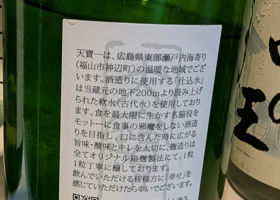 天寶一は、広島県東部瀬戸内海寄り
(福山市神辺町)の温暖な地域でござ
います。酒造りに使用する「仕込水」
は当蔵元の地下200mより汲み上げ
られた軟水(古代水)を使用しており
ます。食を最大限に生かす名脇役を
モットーに食事の邪魔をしない酒造
りを目指し、口に含んだ時に広がる
旨味・酸味とキレを大切に、麹造りは
全てオリジナル箱麹製法にて、1粒
1粒丁寧に醸しております。
飲んでいただける皆様方に「幸せ」を
感じていただければ幸いでございます。